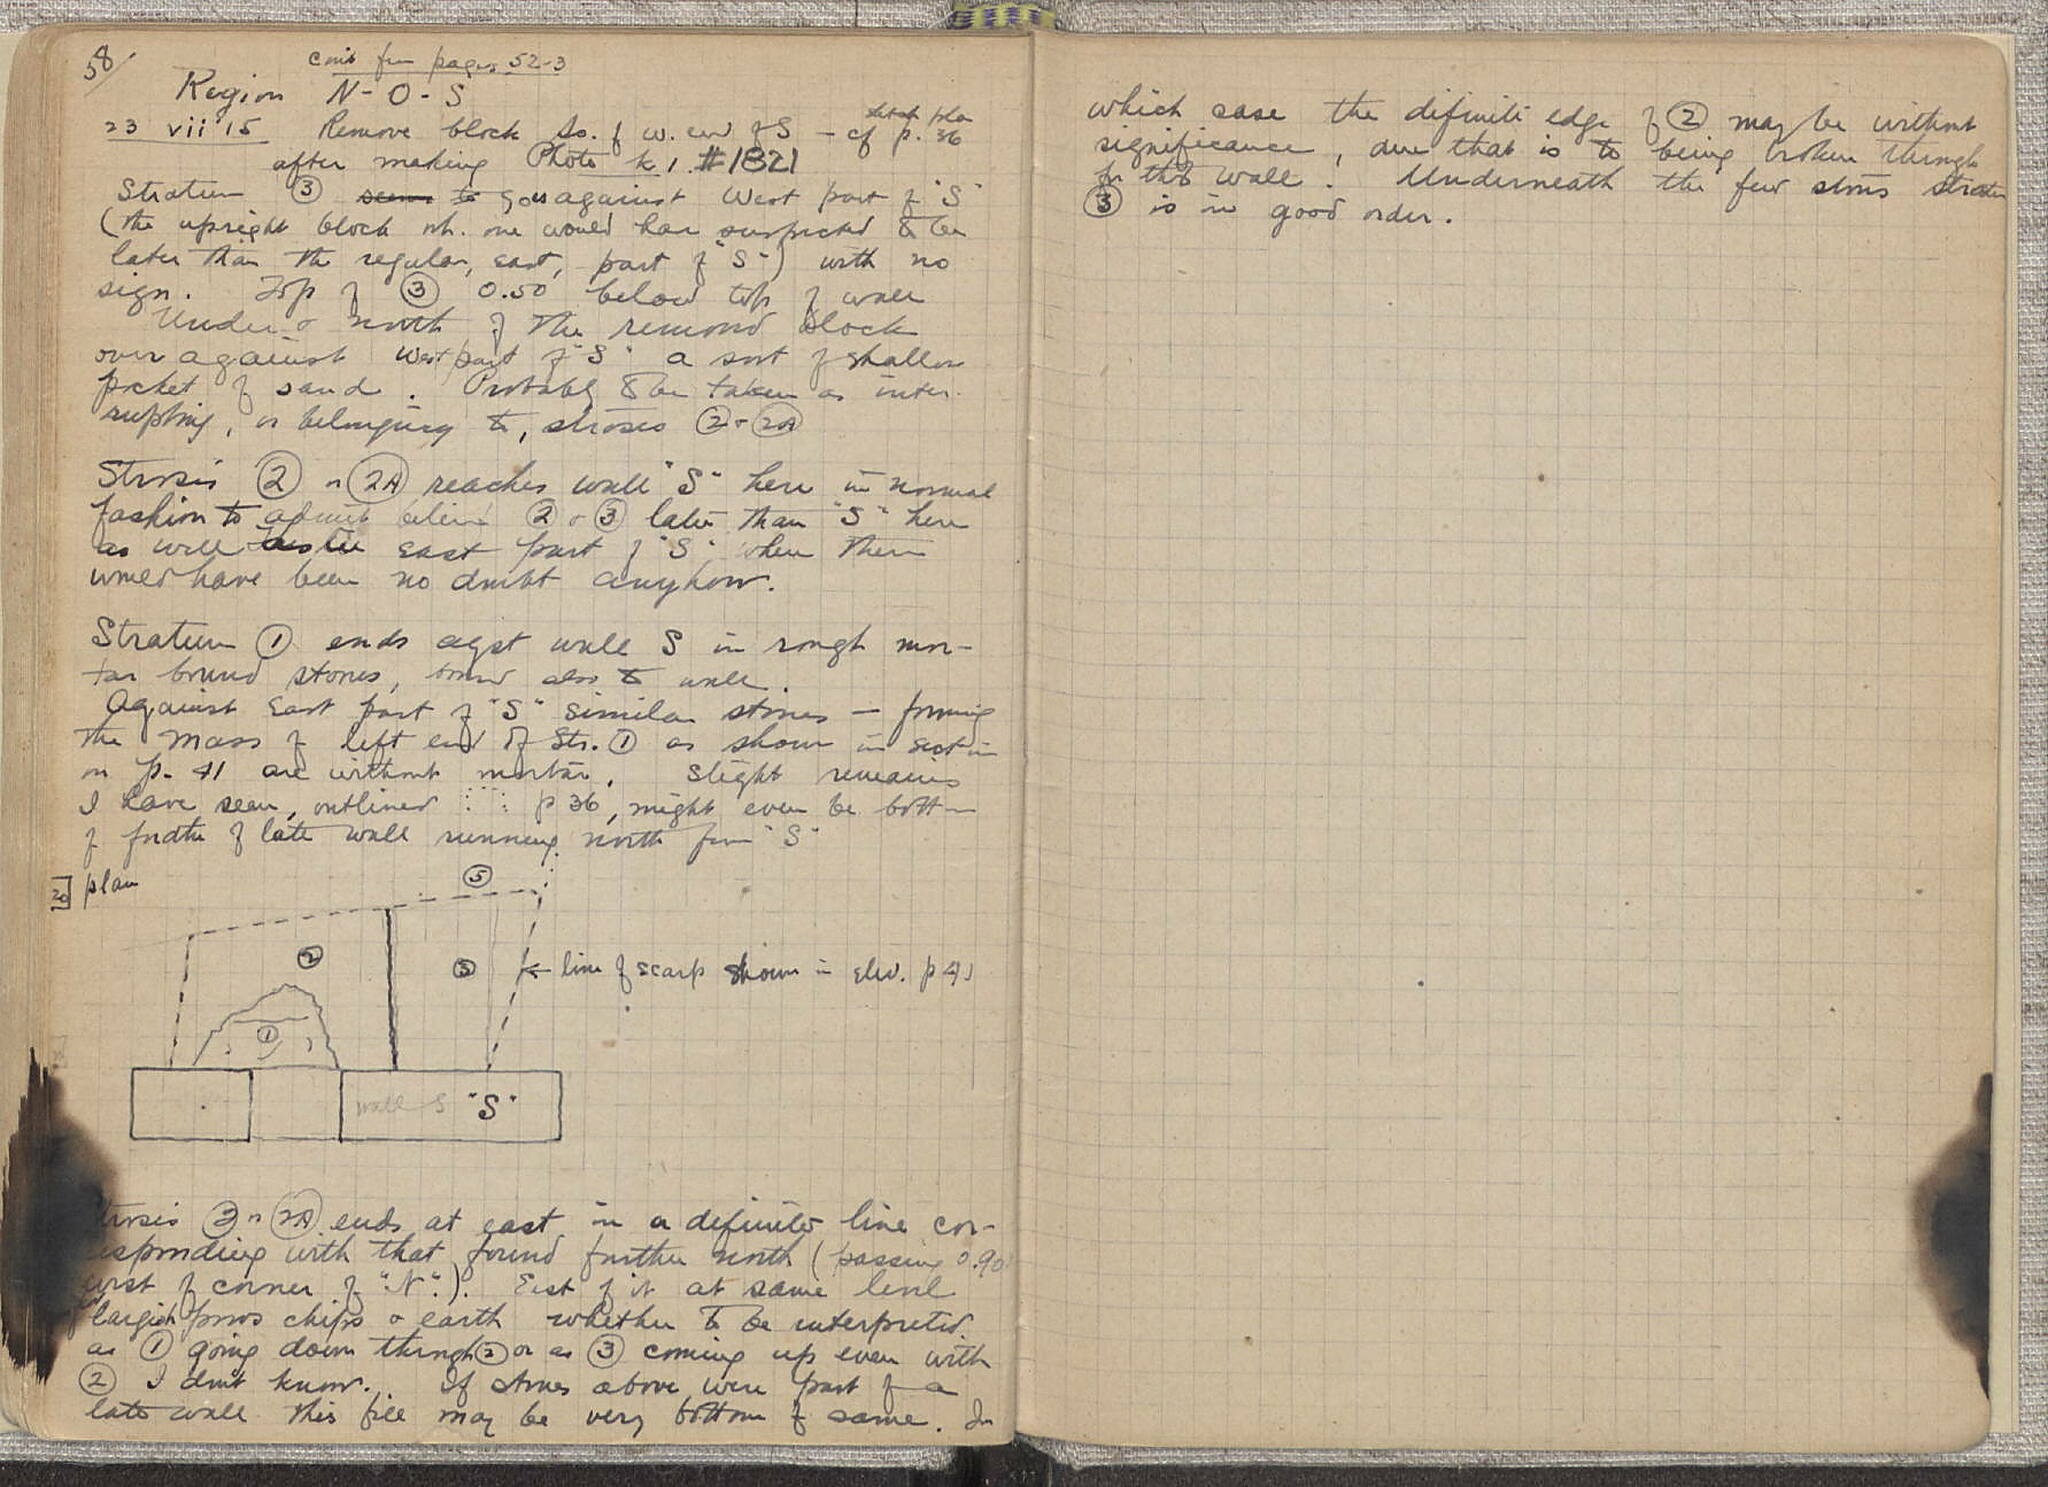 58
cont from pages 52-3
Region N-O-S
23 vii '15 Remove block So. of w. end of S - cf p. 36
after making Photo k 1. #1821
Stratum ③ seems to goes against West part of "S"
(the upright block wh. one would have suspected to be
later than the regular, east, part of "S") with no
sign. Top of ③ 0.50 below top of wall
Under & north of the removed block
over against West part of "S" a sort of shallow
pocket of sand. Probably to be taken as inter
rupting, or belonging to, stroses ② & 2A
Strosis ② or 2A reaches wall "S" here in normal
fashion to ② & ③ later than "S" here
as well as in east part of "S", where there
would have been no doubt anyhow.
Stratum ① ends agst wall S in rough mor-
tar bound stones, bound also to wall.
Against East part of "S" similar stones - forming
the mass of left end of Str. ① as shown in section
on p. 41 are without mortar. Slight remains
I have seen, outlined p 36, might even be bottom
of fndtn of late wall running north from "S"
20 plan
⑤
②
③
← line of scarp shown in elev. p 41
①
wall S "S"
trosis ② or 2A ends at east in a definite line cor-
responding with that found further north (passing 0.90
west of corner of "N".). East of it at same level
largish poros chips & earth whether to be interpreted
as ① going down through ② or as ③ coming up even with
② I don't know. If stones above were part of a
late wall this fill may be very bottom of same. In
which case the definite edge of ② may be without
significance, due that is to being broken through
for that wall. Underneath the few stones stratum
③ is in good order.